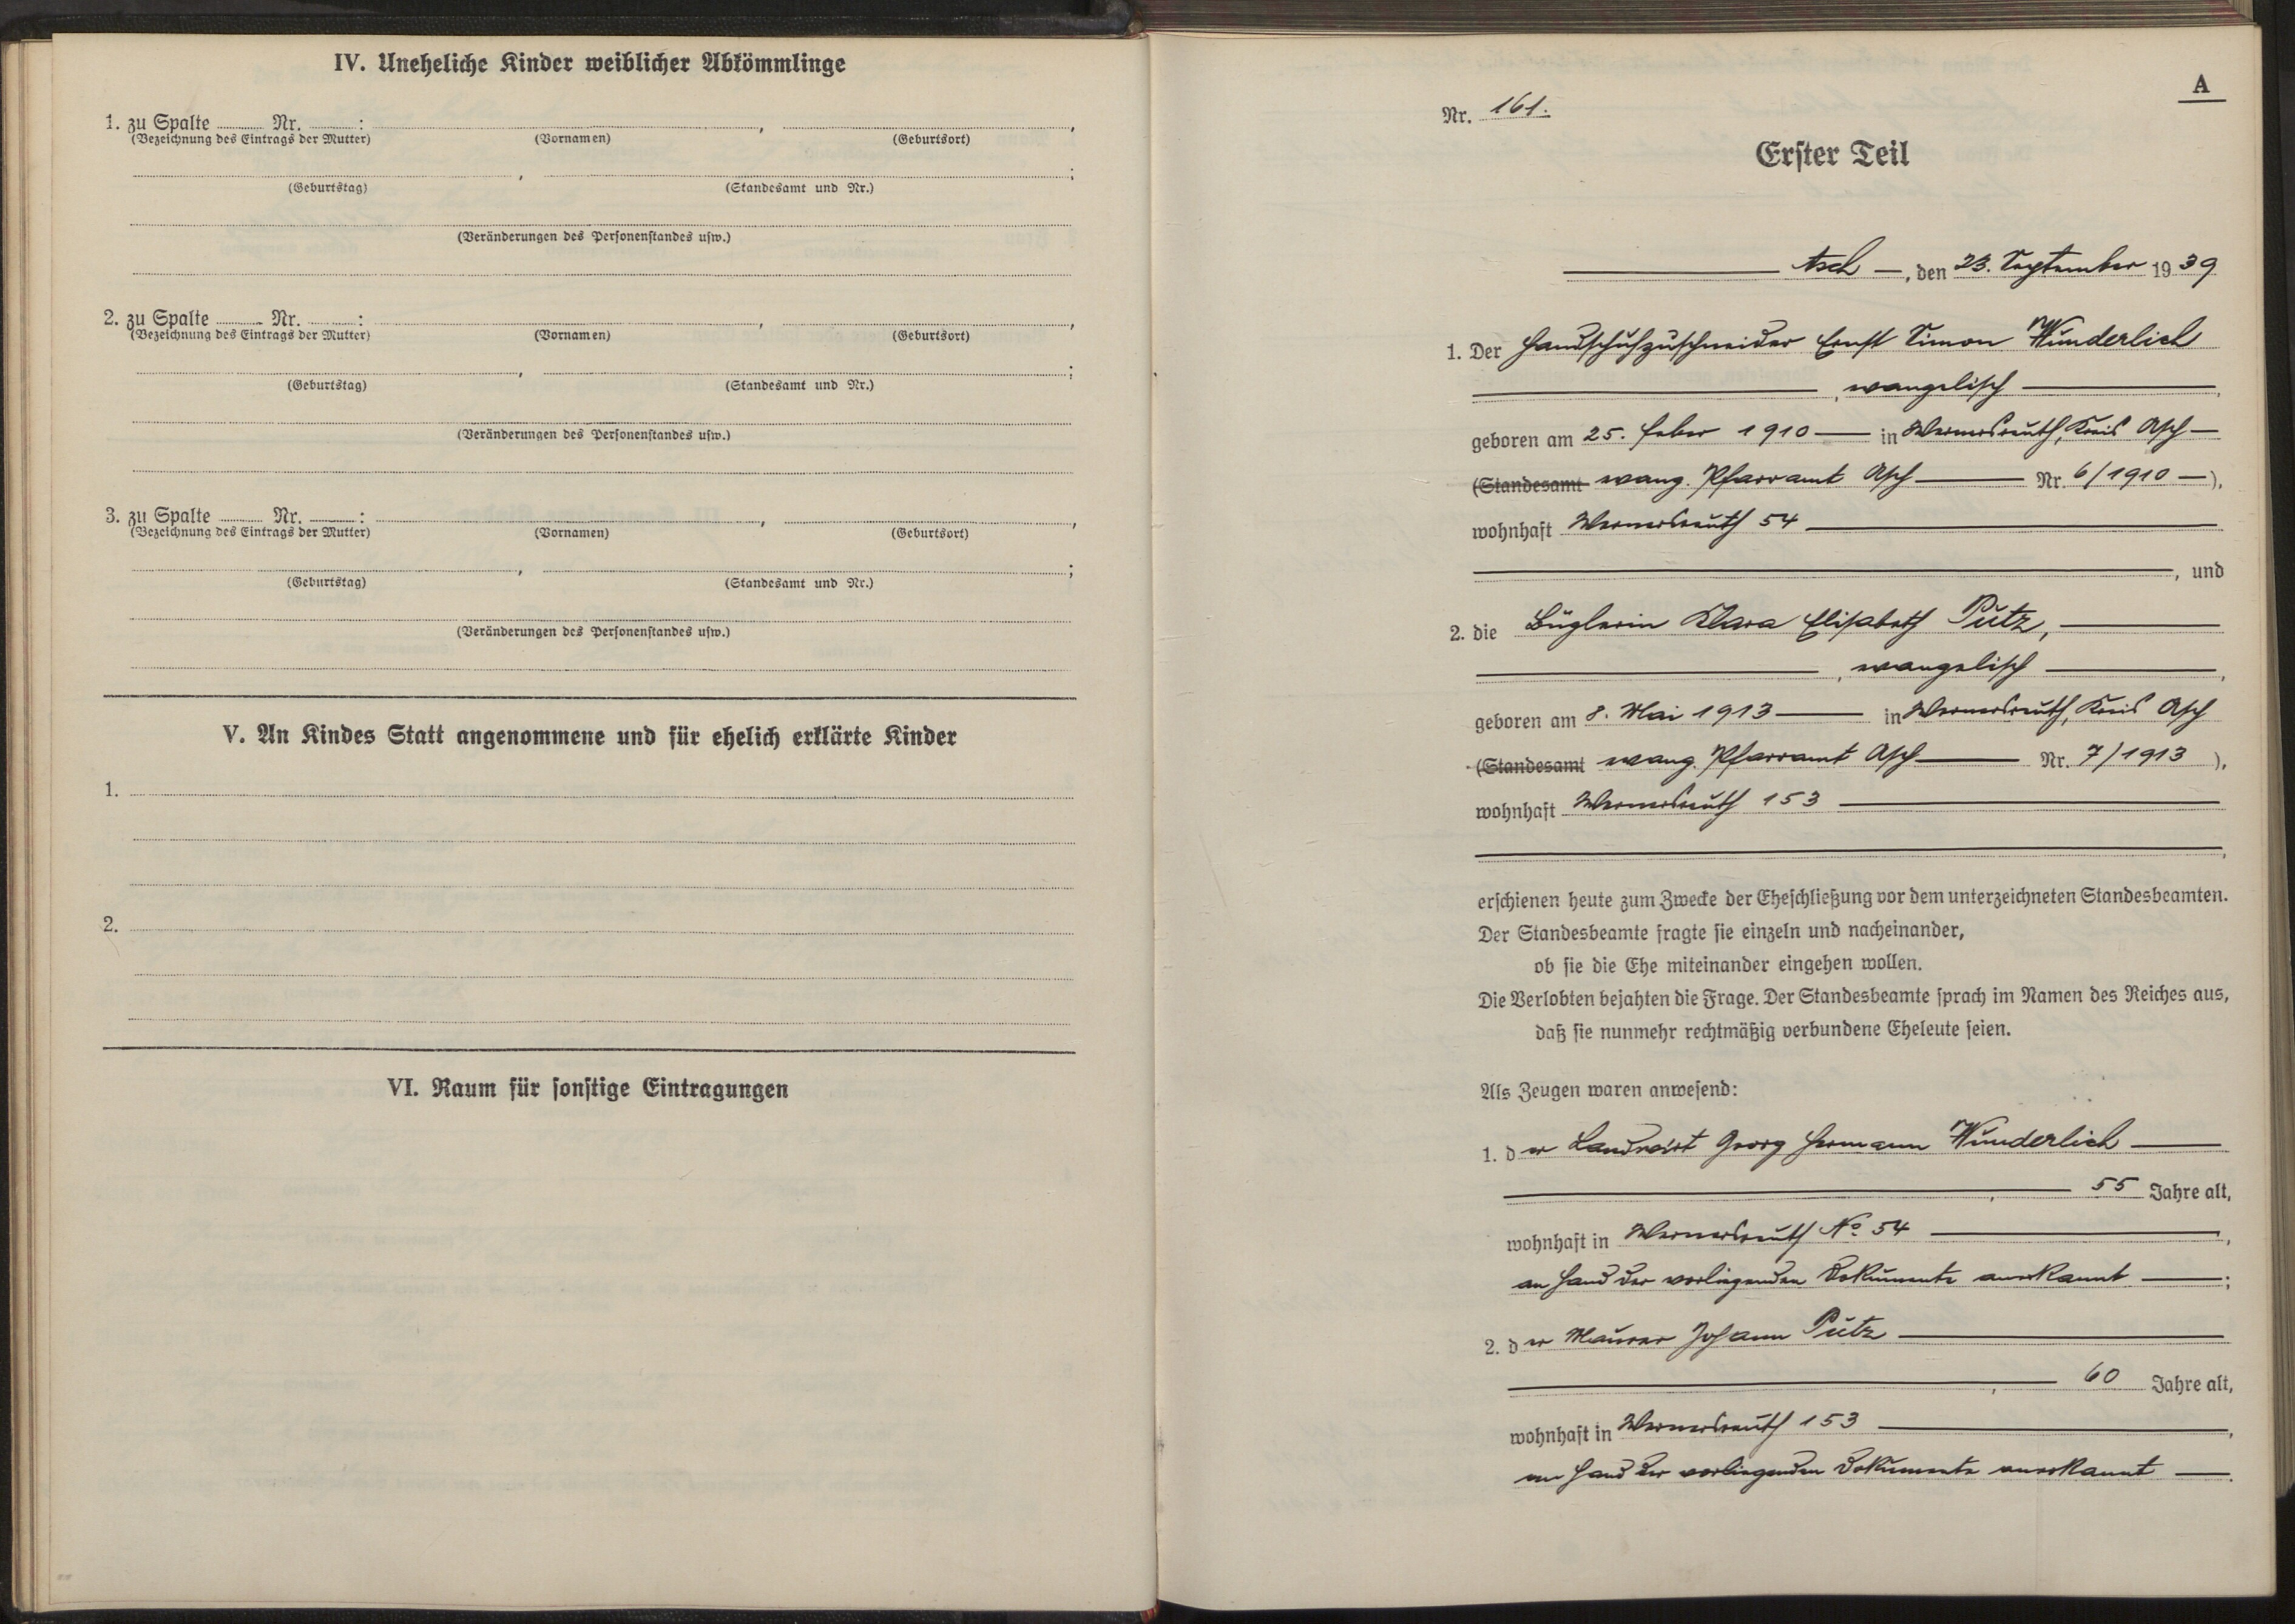 IV. Uneheliche Kinder weiblicher Abkömmlinge
1. zu Spalte ........ Nr. ........:
(Bezeichnung des Eintrags der Mutter) (Vornamen) (Geburtsort)
(Geburtstag) (Standesamt und Nr.)
(Veränderungen des Personenstandes usw.)
2. zu Spalte ........ Nr. ........:
(Bezeichnung des Eintrags der Mutter) (Vornamen) (Geburtsort)
(Geburtstag) (Standesamt und Nr.)
(Veränderungen des Personenstandes usw.)
3. zu Spalte ........ Nr. ........:
(Bezeichnung des Eintrags der Mutter) (Vornamen) (Geburtsort)
(Geburtstag) (Standesamt und Nr.)
(Veränderungen des Personenstandes usw.)
V. An Kindes Statt angenommene und für ehelich erklärte Kinder
1.
2.
VI. Raum für sonstige Eintragungen
A
Nr. 161.
Erster Teil
Asch —, den 23. September 1939
1. Der Handschuhzuschneider Ernst Simon Wunderlich
, evangelisch —,
geboren am 25. Feber 1910 — in Wernersreuth, Kreis Asch —
(Standesamt evang. Pfarramt Asch — Nr. 6/1910 —),
wohnhaft Wernersreuth 54 —
—, und
2. die Büglerin Klara Elisabeth Pütz, —
, evangelisch —,
geboren am 8. Mai 1913 — in Wernersreuth, Kreis Asch
(Standesamt evang. Pfarramt Asch — Nr. 7/1913 ),
wohnhaft Wernersreuth 153 —
—,
erschienen heute zum Zwecke der Eheschließung vor dem unterzeichneten Standesbeamten.
Der Standesbeamte fragte sie einzeln und nacheinander,
ob sie die Ehe miteinander eingehen wollen.
Die Verlobten bejahten die Frage. Der Standesbeamte sprach im Namen des Reiches aus,
daß sie nunmehr rechtmäßig verbundene Eheleute seien.
Als Zeugen waren anwesend:
1. der Landwirt Georg Hermann Wunderlich —
—, — 55 Jahre alt,
wohnhaft in Wernersreuth No 54 —,
an Hand der vorliegenden Dokumente anerkannt —;
2. der Maurer Johann Pütz —
—, — 60 Jahre alt,
wohnhaft in Wernersreuth 153 —,
an Hand der vorliegenden Dokumente anerkannt —.